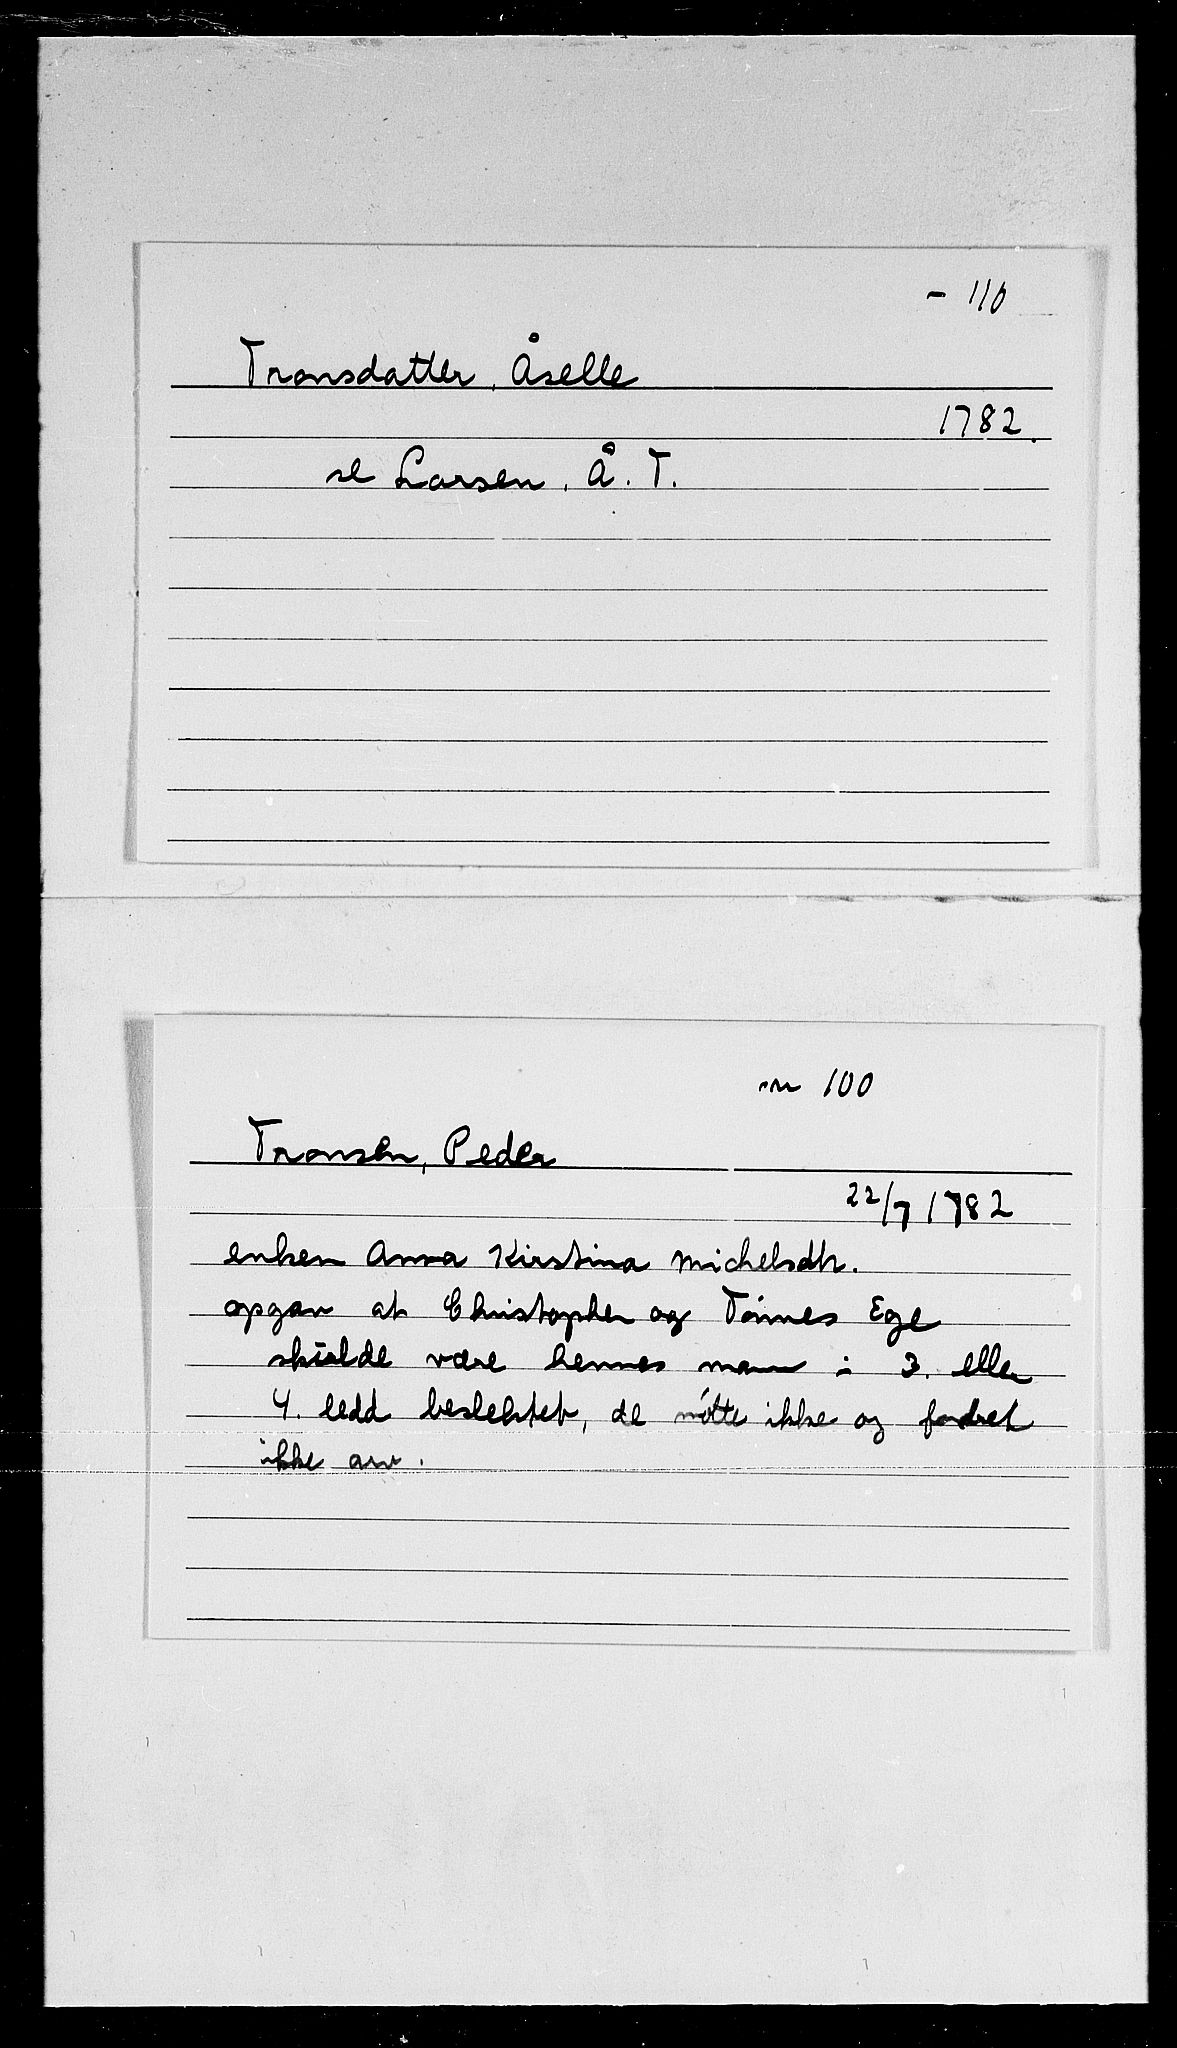 - 110
Tronsdatter, Åselle
1782.
se Larsen, Å. T.
nr 100
Tronsen, Peder
22/7 1782
enken Anna Kirstina Michelsdtr.
opgav at Christopher og Tönnes Ege
skulde være hennes mann i 3. eller
4. ledd beslektet, de mötte ikke og fordret
ikke arv.